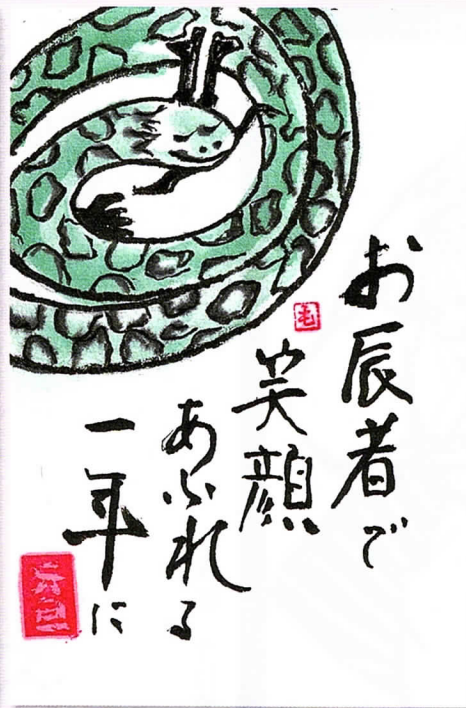 お辰者で
笑顔
あふれる
一年に
元旦